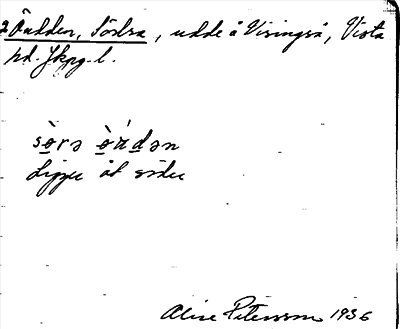 2 Öudden, Södra, udde å Visingsö, Vista
hd. Jkpg. l.
sörə ö̀ùdən
Ligger åt söder
Alice Petersson 1936